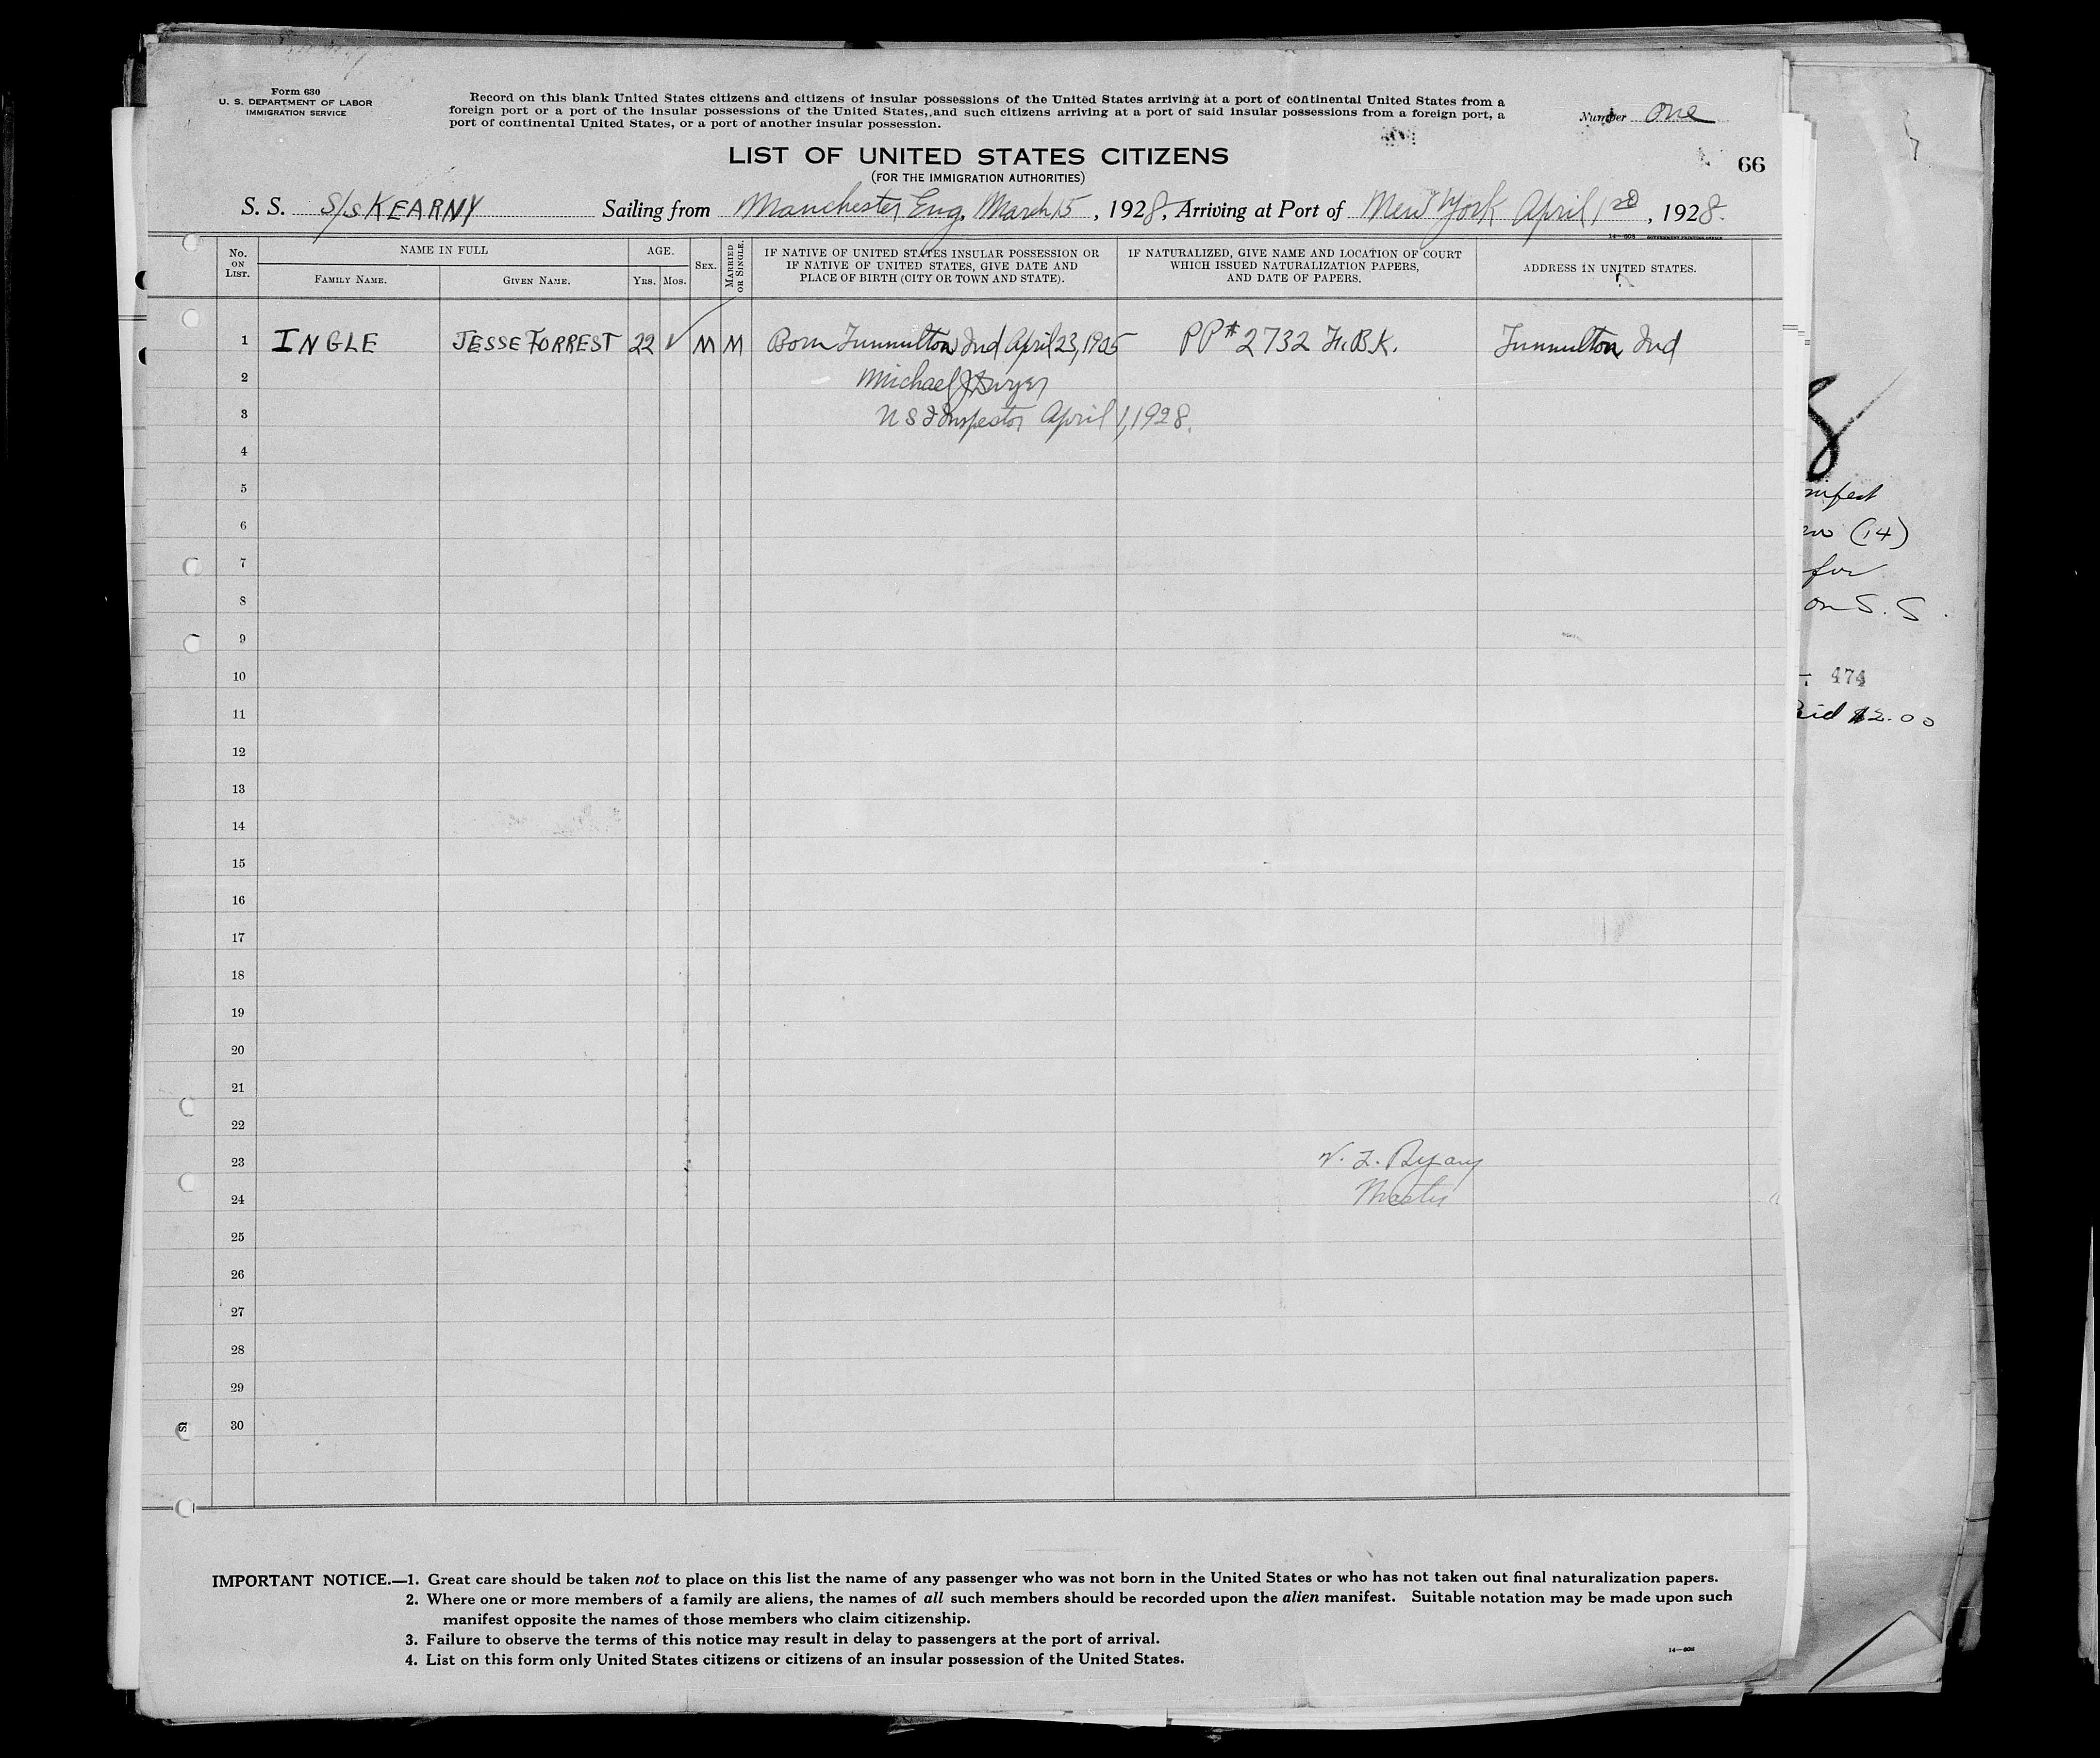 Form 630
U. S. DEPARTMENT OF LABOR
IMMIGRATION SERVICE
Record on this blank United States citizens and citizens of insular possessions of the United States arriving at a port of continental United States from a
foreign port or a port of the insular possessions of the United States, and such citizens arriving at a port of said insular possessions from a foreign port, a
port of continental United States, or a port of another insular possession.
Number one
LIST OF UNITED STATES CITIZENS
(FOR THE IMMIGRATION AUTHORITIES)
66
S. S. S/S KEARNY Sailing from Manchester Eng. March 15, 1928, Arriving at Port of New York April 1, 1928.
14—608 GOVERNMENT PRINTING OFFICE
No. ON LIST.
NAME IN FULL
FAMILY NAME.
GIVEN NAME.
AGE.
YRS. MOS.
SEX.
MARRIED OR SINGLE.
IF NATIVE OF UNITED STATES INSULAR POSSESSION OR
IF NATIVE OF UNITED STATES, GIVE DATE AND
PLACE OF BIRTH (CITY OR TOWN AND STATE).
IF NATURALIZED, GIVE NAME AND LOCATION OF COURT
WHICH ISSUED NATURALIZATION PAPERS,
AND DATE OF PAPERS.
ADDRESS IN UNITED STATES.
1 INGLE JESSE FORREST 22 M M Born Tunnulton Ind April 23, 1905 PP# 2732 Tunnulton Ind
2 Michael J Dwyer
3 Inspector April 1, 1928.
4
5
6
7
8
9
10
11
12
13
14
15
16
17
18
19
20
21
22
23
24 Master
25
26
27
28
29
30
IMPORTANT NOTICE.—1. Great care should be taken not to place on this list the name of any passenger who was not born in the United States or who has not taken out final naturalization papers.
2. Where one or more members of a family are aliens, the names of all such members should be recorded upon the alien manifest. Suitable notation may be made upon such
manifest opposite the names of those members who claim citizenship.
3. Failure to observe the terms of this notice may result in delay to passengers at the port of arrival.
4. List on this form only United States citizens or citizens of an insular possession of the United States.
14—608
8
(14)
for
on S. S.
474
$2.00